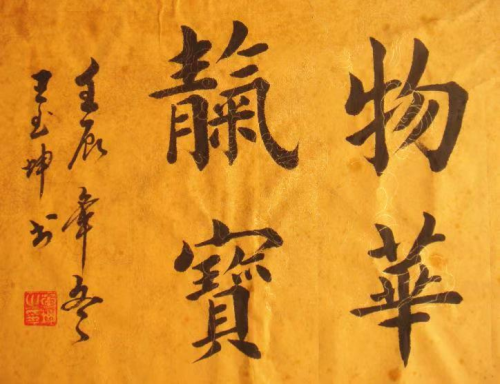 物華
靝寶
壬辰年冬
王玉坤书